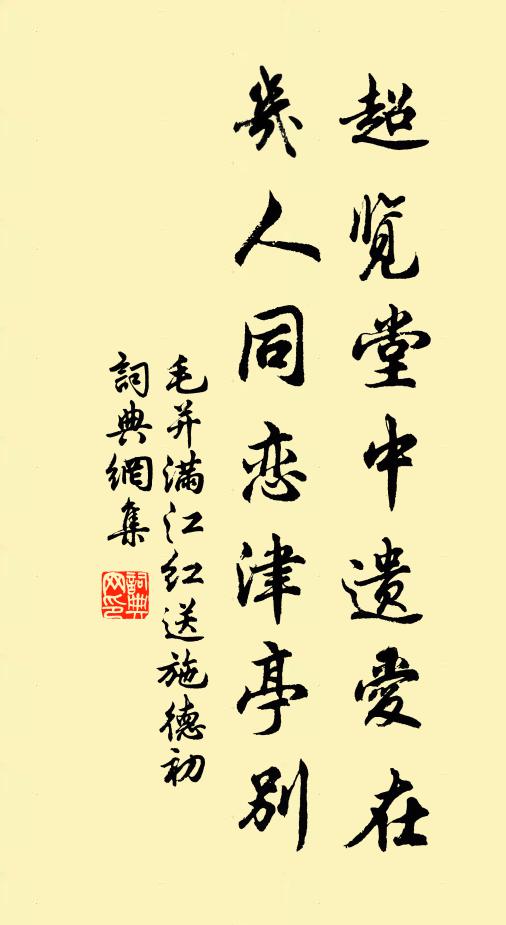 超览堂中遗爱在
几人同恋津亭别
毛并满江红送施德初
詞典網集
詞典网印